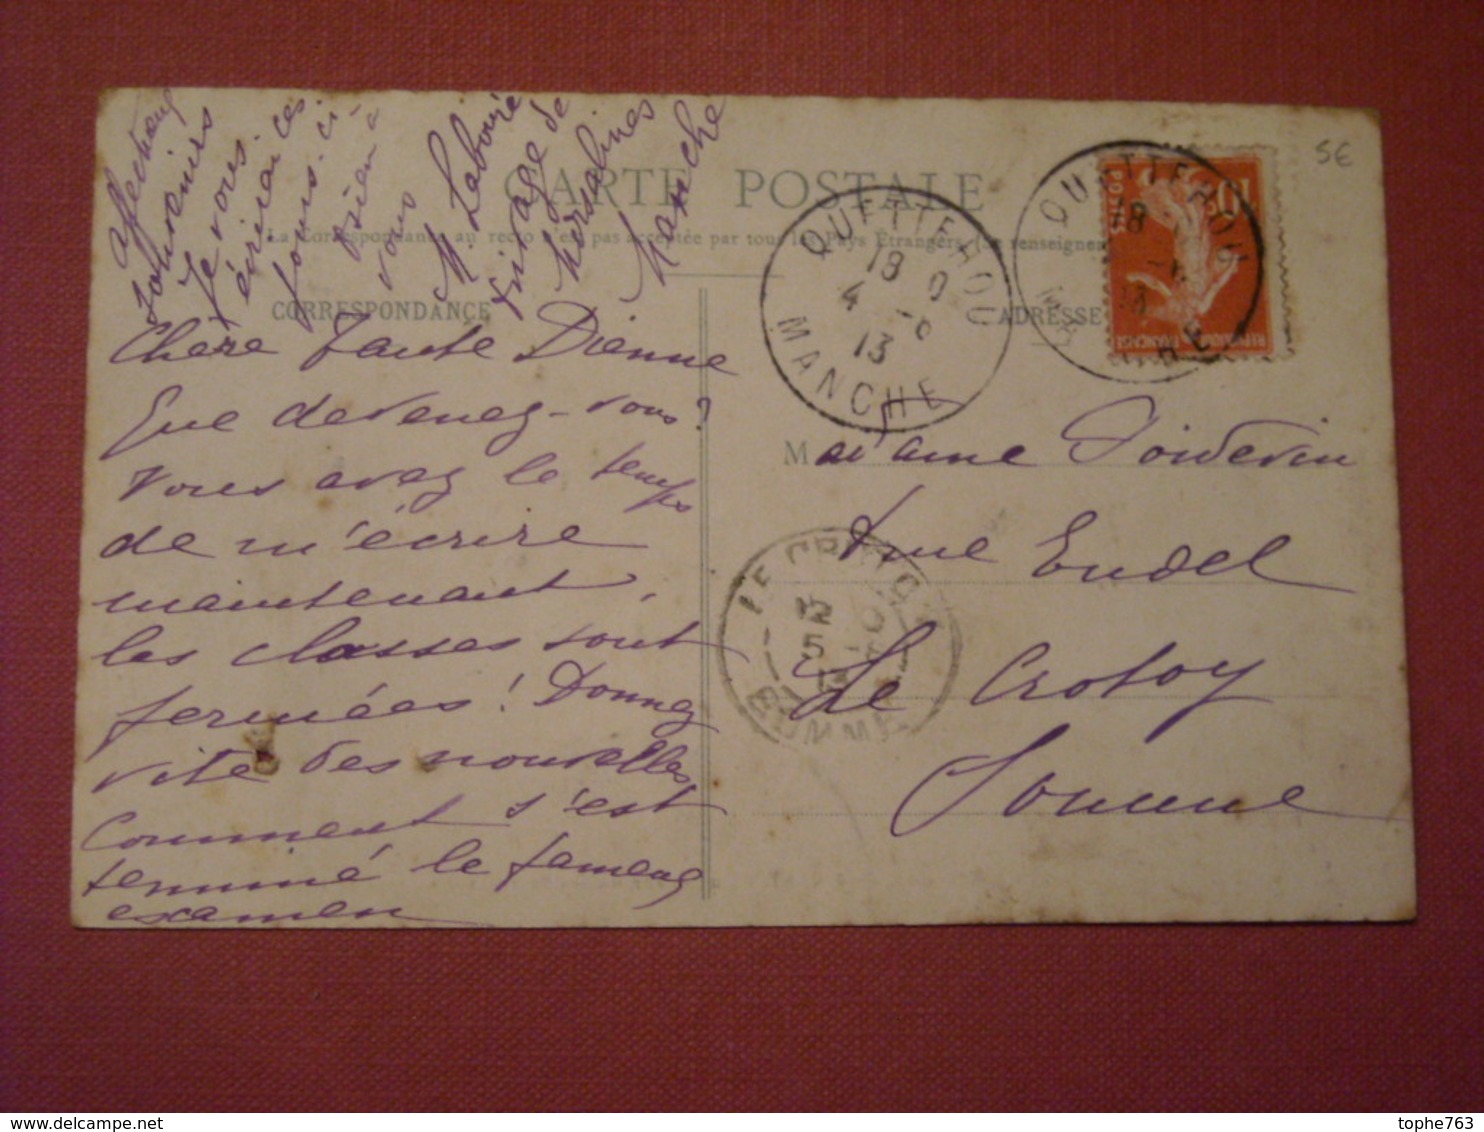 CARTE POSTALE
La Correspondance au recto n'est pas acceptée par tous les Pays Étrangers (Se renseigner
CORRESPONDANCE
ADRESSE
Chère Tante Dienne
Que devenez-vous?
Vous avez le temps
de m'écrire
maintenant,
les classes sont
fermées! Donnez
vite des nouvelles
Comment s'est
terminé le fameux
examen
affectueux
souvenirs
Je vous
écrirai ces
jours-ci
bien à
vous
M. Labouré
Ermitage de
Morsalines
Manche
QUETTEHOU
18
4 -8
13
MANCHE
QUETTEHOU
18
POSTES
10
REPUBLIQUE FRANÇAISE
Madame Poidevin
rue Eudel
Le Crotoy
Somme
LE CROTOY
5
SOMME
5€
tophe763